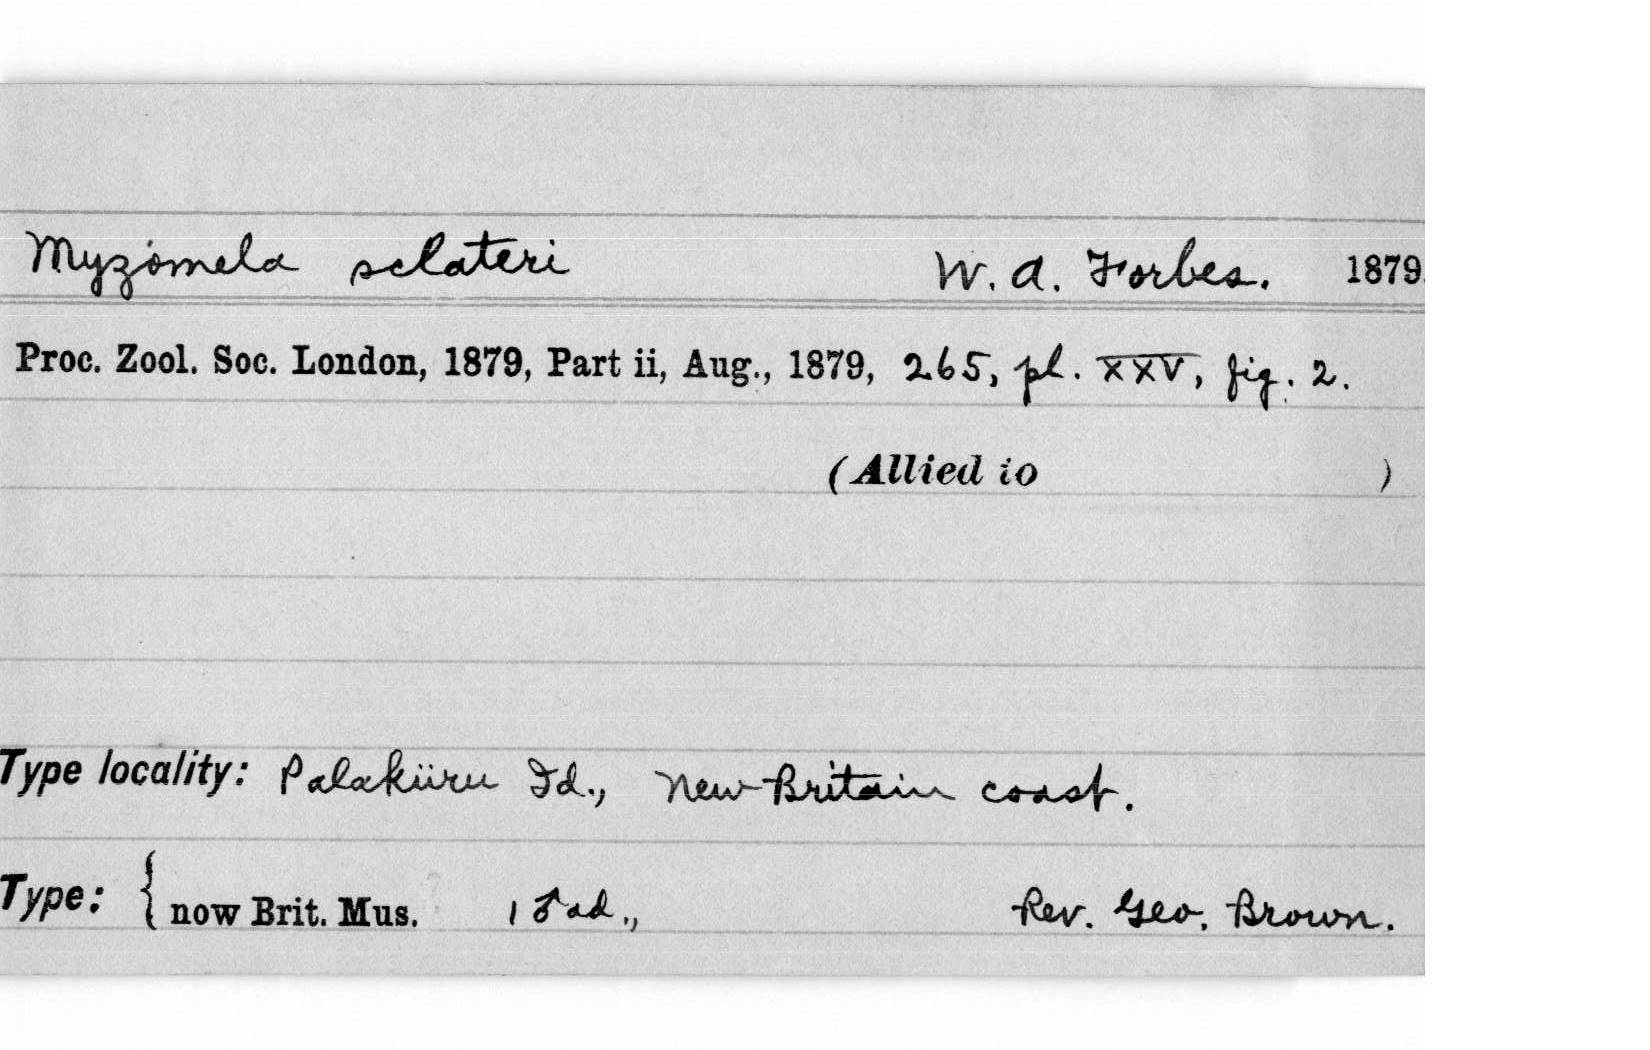 Myzomela sclateri W. A. Forbes. 1879.
Proc. Zool. Soc. London, 1879, Part ii, Aug., 1879, 265, pl. XXV, fig. 2.
(Allied to )
Type locality: Palaküru Id., New Britain coast.
Type: { now Brit. Mus. 1 ♂ ad., Rev. Geo. Brown.